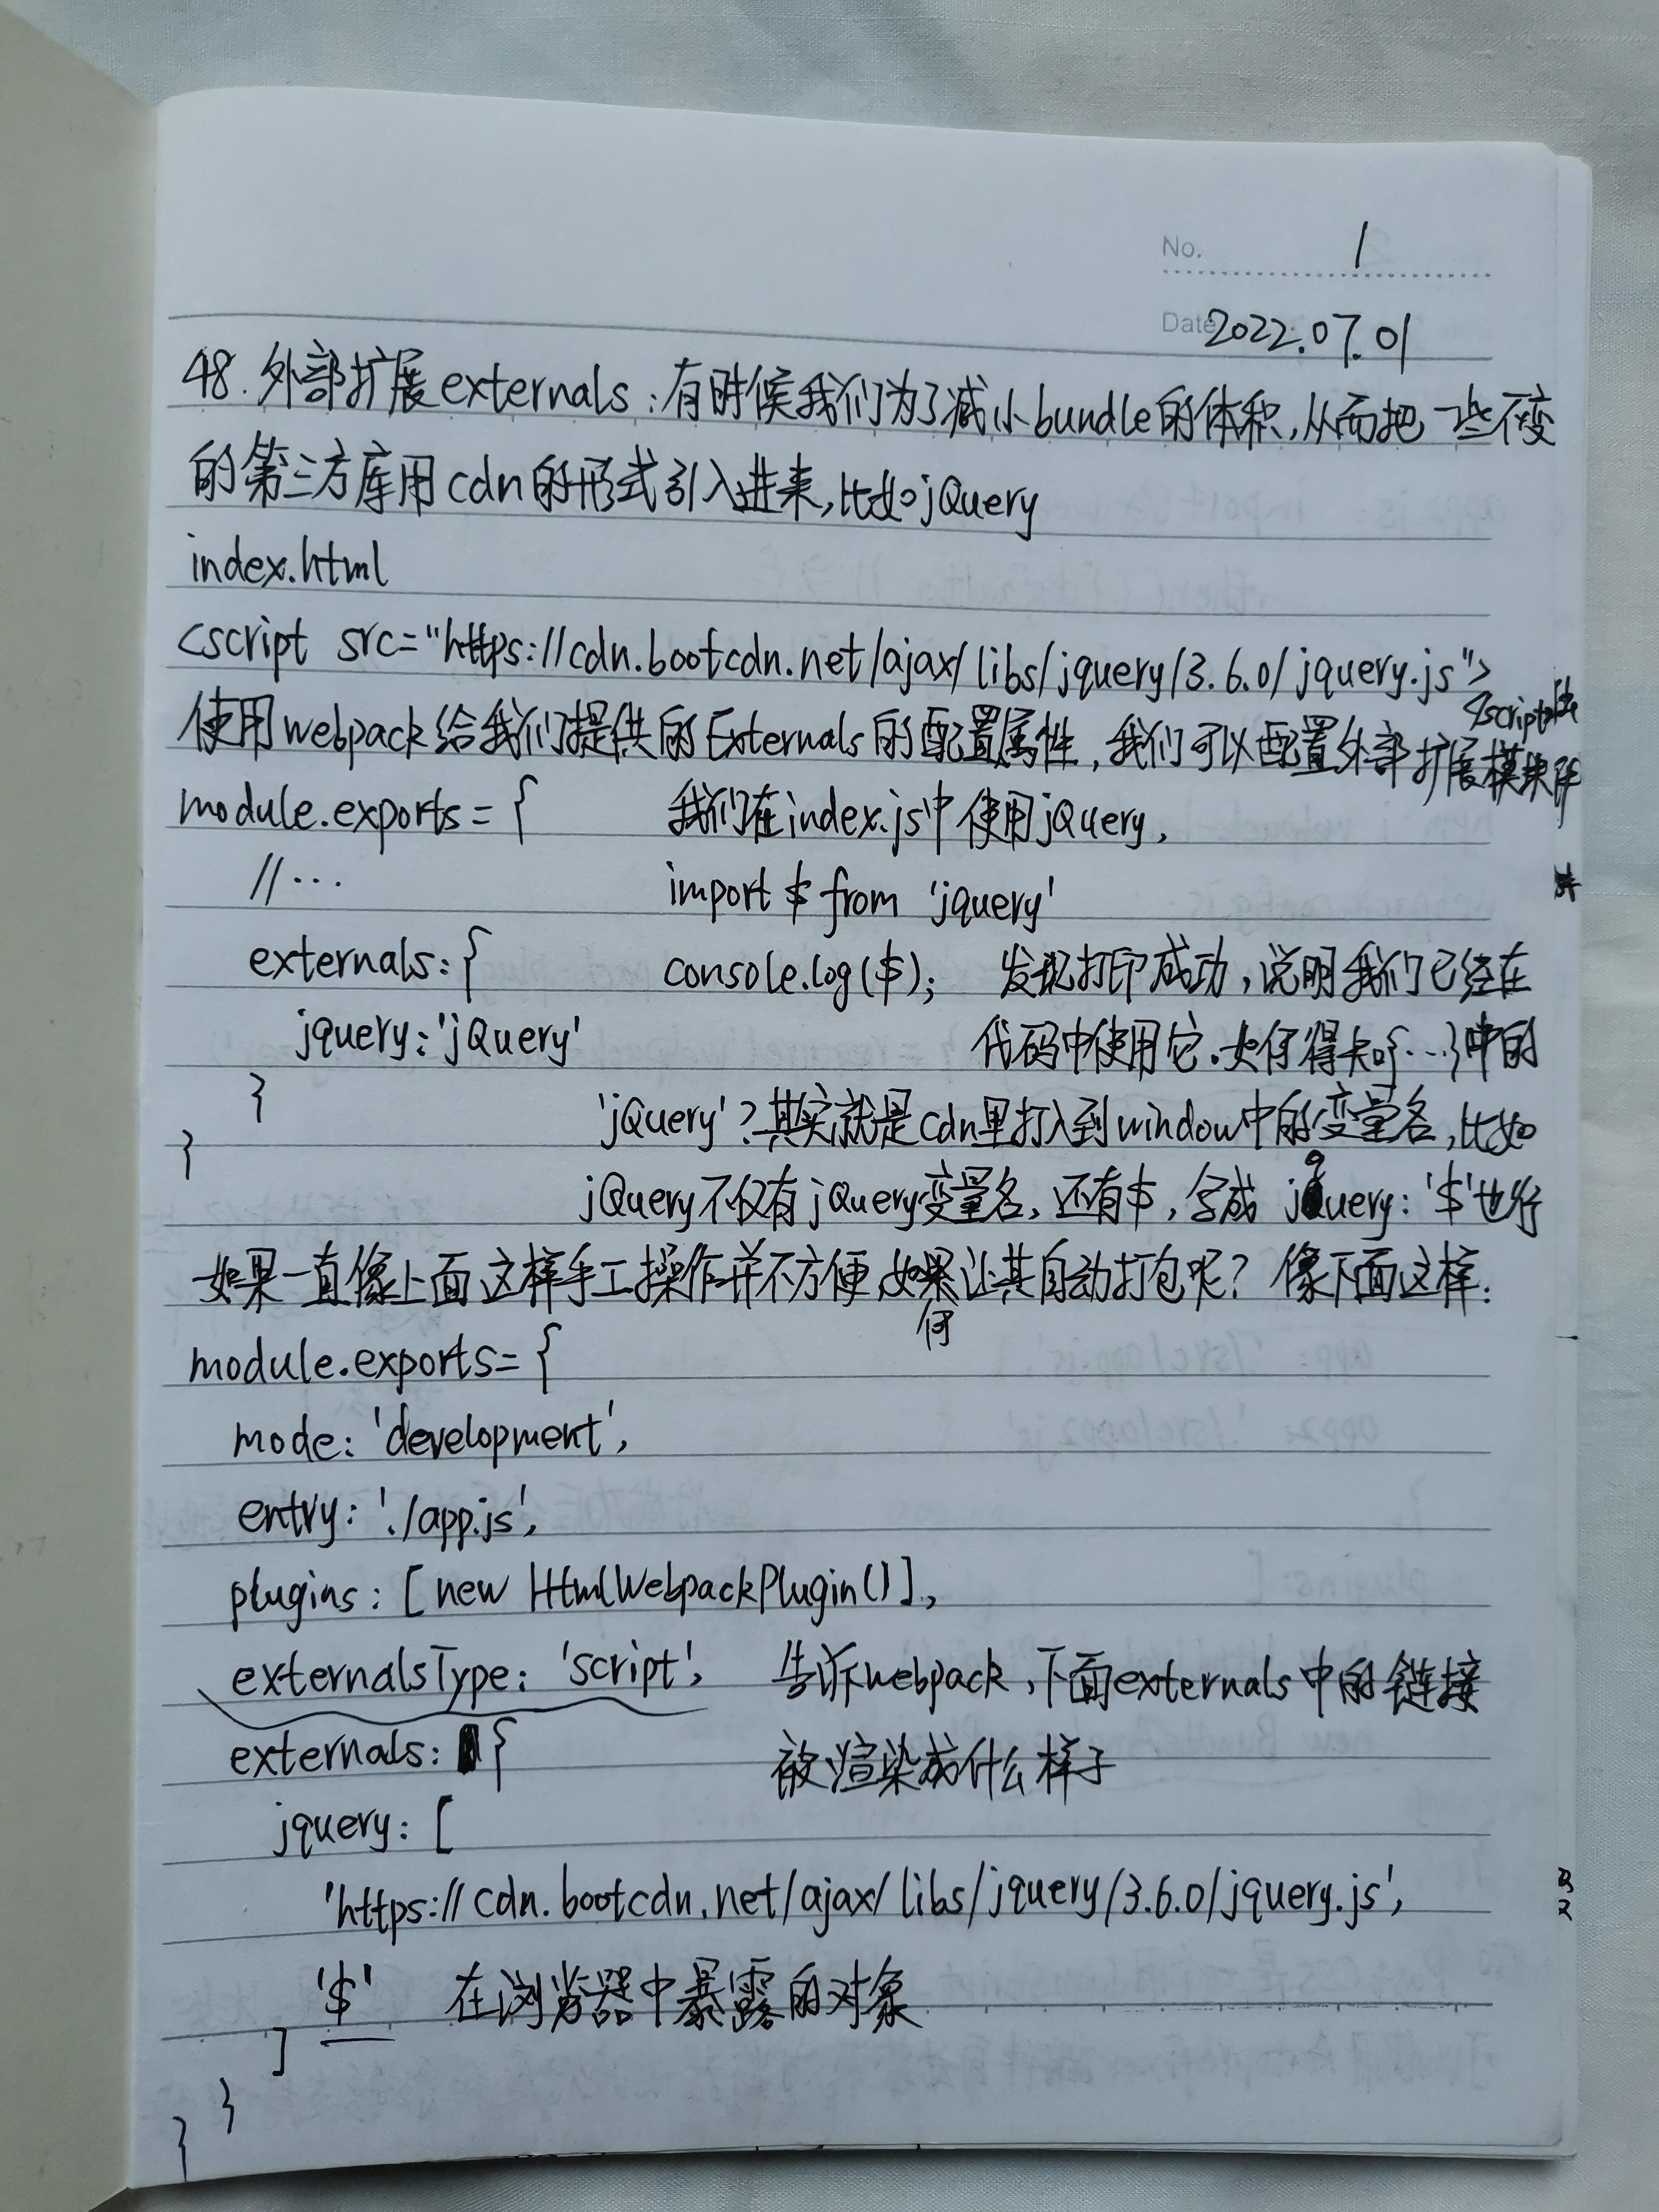 No. 1
Date 2022.07.01
48.外部扩展externals:有时候我们为了减小bundle的体积,从而把一些不变
的第三方库用cdn的形式引入进来,比如jQuery
index.html
<script src="https://cdn.bootcdn.net/ajax/libs/jquery/3.6.0/jquery.js">
</script>
使用webpack给我们提供的Externals的配置属性,我们可以配置外部扩展模块
module.exports = { 我们在index.js中使用jQuery,
//... import $ from 'jquery'
externals:{ console.log($); 发现打印成功,说明我们已经在
jquery:'jQuery' 代码中使用它.如何得知{...}中的
} 'jQuery'?其实就是cdn里打入到window中的变量名,比如
} jQuery不仅有jQuery变量名,还有$,写成 jquery:'$'也行
如果一直像上面这样手工操作并不方便,如何让其自动打包呢?像下面这样:
module.exports={
mode:'development',
entry:'./app.js',
plugins:[new HtmlWebpackPlugin()],
externalsType:'script', 告诉webpack,下面externals中的链接
externals:{ 被渲染成什么样子
jquery:[
'https://cdn.bootcdn.net/ajax/libs/jquery/3.6.0/jquery.js',
'$' 在浏览器中暴露的对象
]
}
}